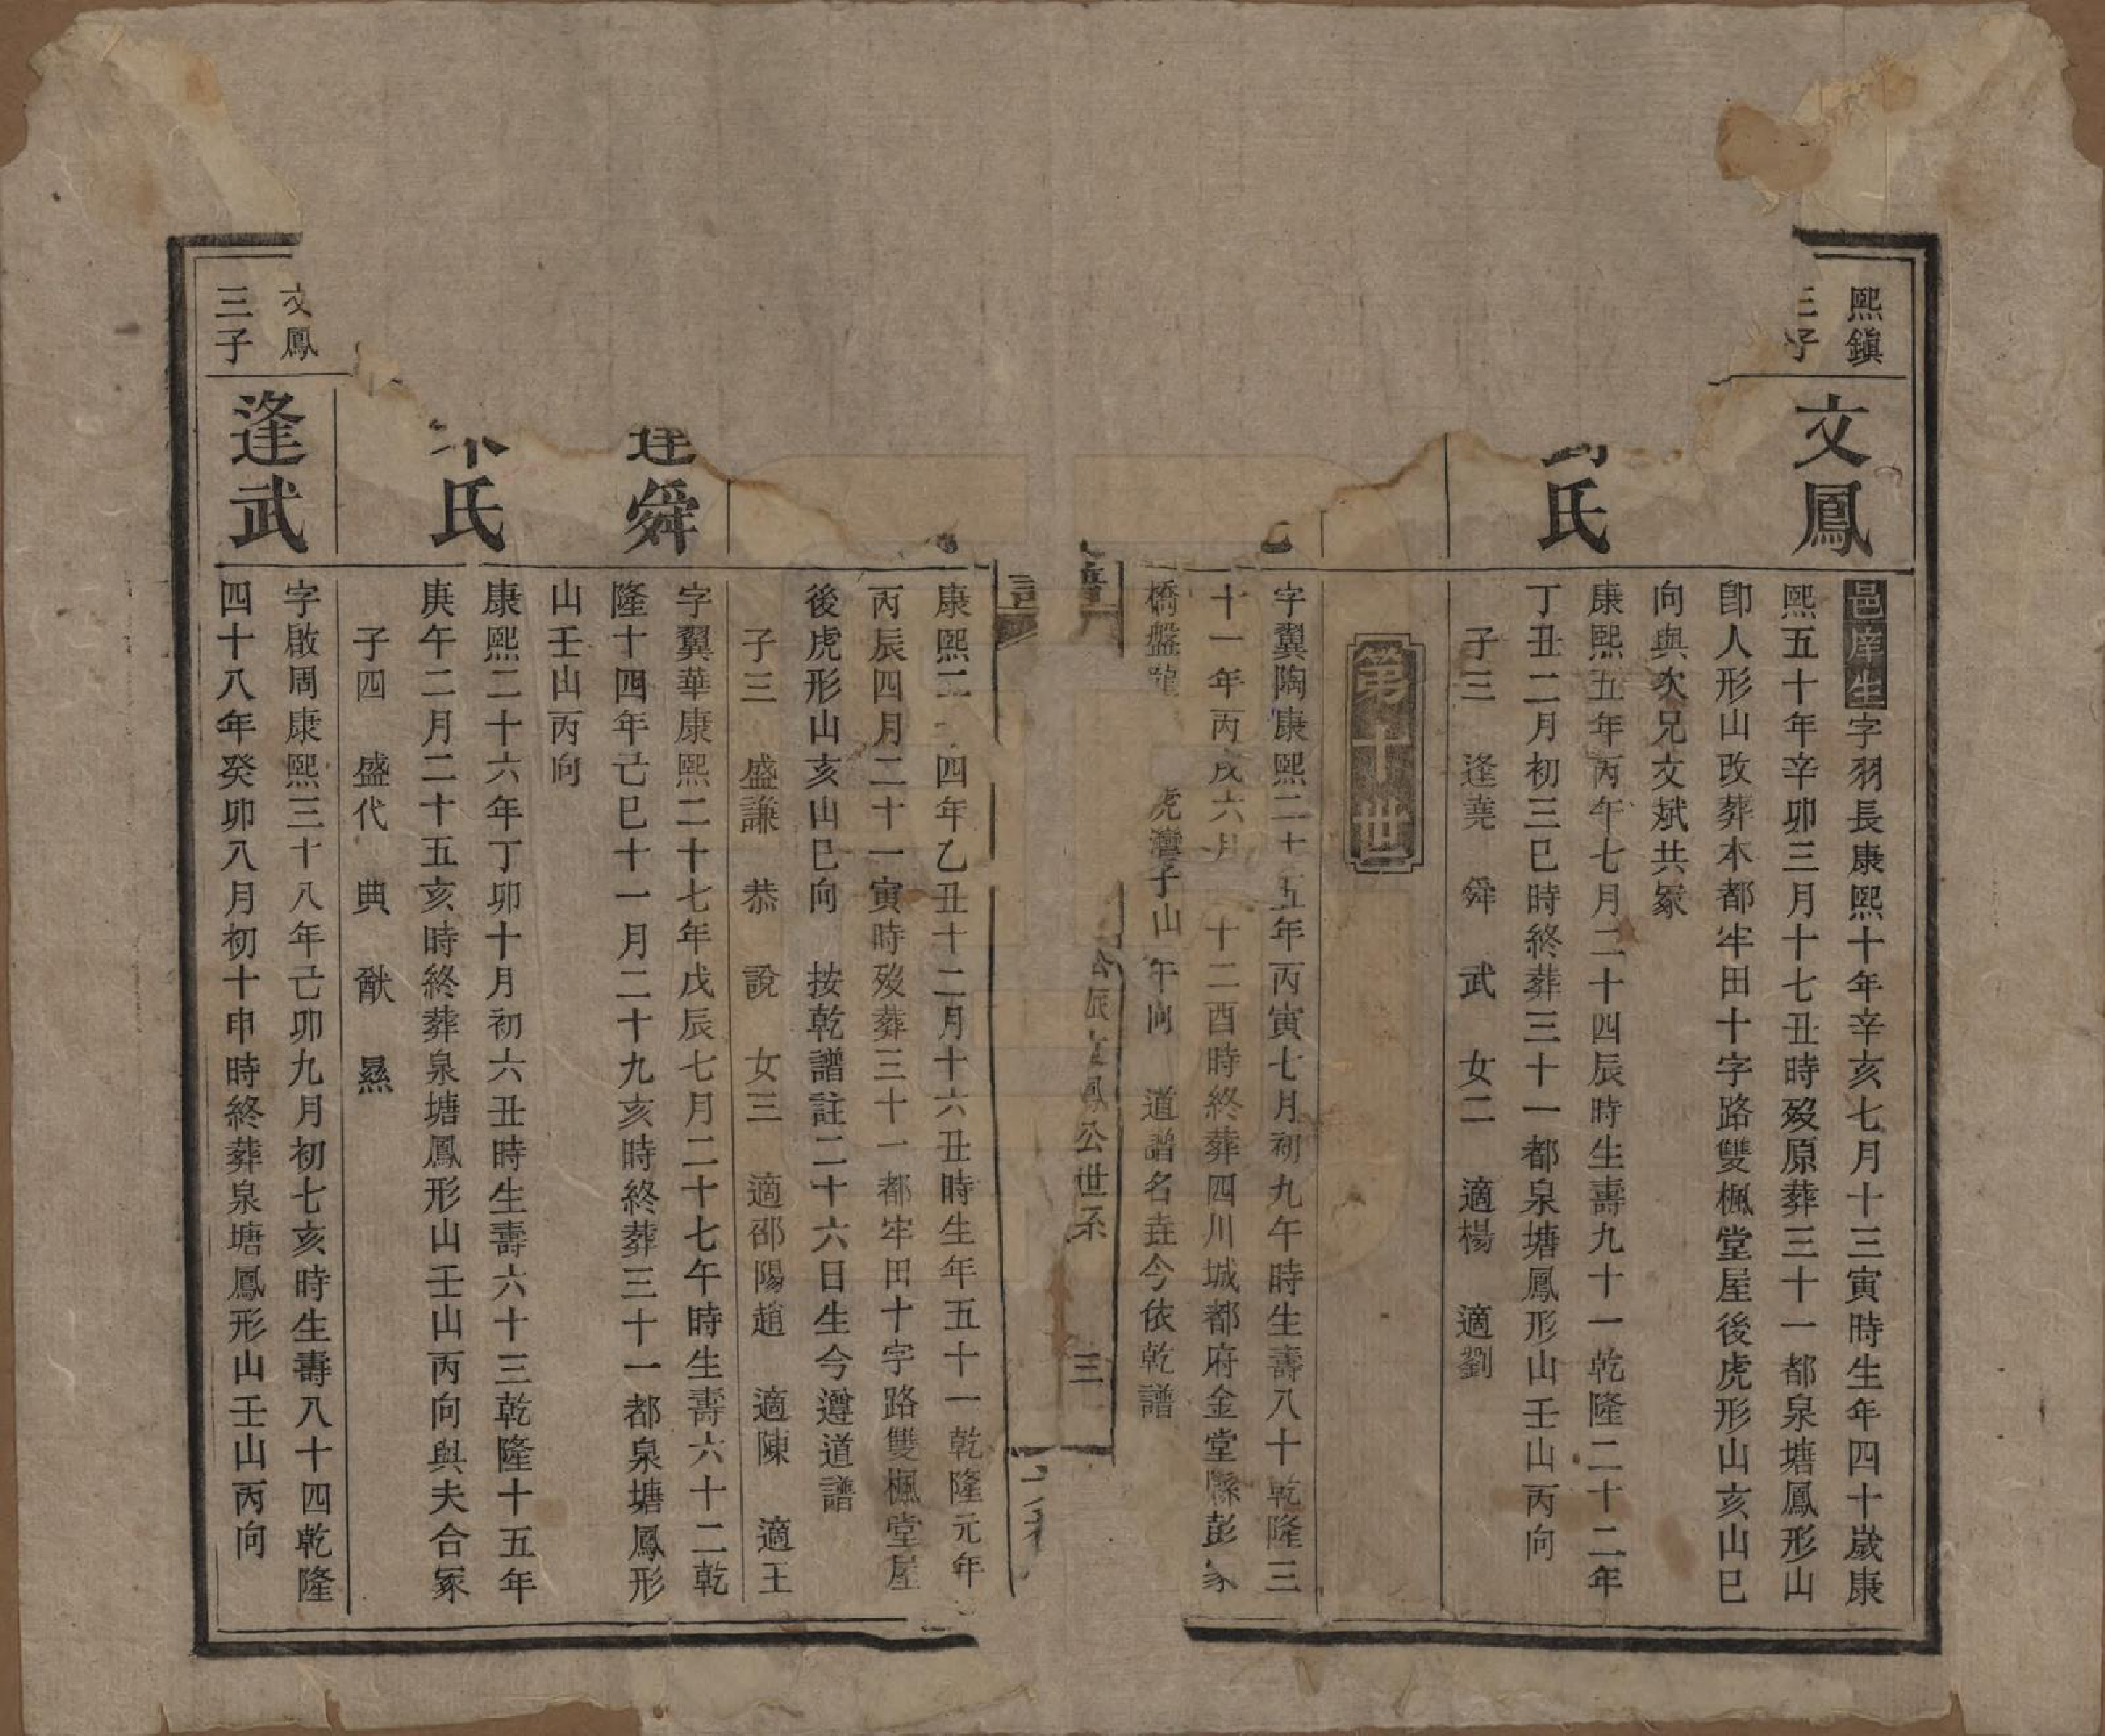 熙鎮
三子
文鳳
邑庠生字羽長康熙十年辛亥七月十三寅時生年四十歲康
熙五十年辛卯三月十七丑時歿原葬三十一都泉塘鳳形山
卽人形山改葬本都牢田十字路雙楓堂屋後虎形山亥山巳
向與次兄文斌共冢
氏
康熙五年丙午七月二十四辰時生壽九十一乾隆二十二年
丁丑二月初三巳時終葬三十一都泉塘鳳形山壬山丙向
子三 逢堯 舜 武 女二 適楊 適劉
第十世
字翼陶康熙二十五年丙寅七月初九午時生壽八十乾隆三
十一年丙戌六月 十二酉時終葬四川城都府金堂縣彭家
橋盤龍 虎灣子山午向 道譜名垚今依乾譜
文鳳公世系
三
康熙二 四年乙丑十二月十六丑時生年五十一乾隆元年
丙辰四月二十一寅時歿葬三十一都牢田十字路雙楓堂屋
後虎形山亥山巳向 按乾譜註二十六日生今遵道譜
子三 盛謙 恭 說 女三 適邵陽趙 適陳 適王
逢舜
字翼華康熙二十七年戊辰七月二十七午時生壽六十二乾
隆十四年己巳十一月二十九亥時終葬三十一都泉塘鳳形
山壬山丙向
氏
康熙二十六年丁卯十月初六丑時生壽六十三乾隆十五年
庚午二月二十五亥時終葬泉塘鳳形山壬山丙向與夫合冢
子四 盛代 典 猷 㬎
文鳳
三子
逢武
字啟周康熙三十八年己卯九月初七亥時生壽八十四乾隆
四十八年癸卯八月初十申時終葬泉塘鳳形山壬山丙向